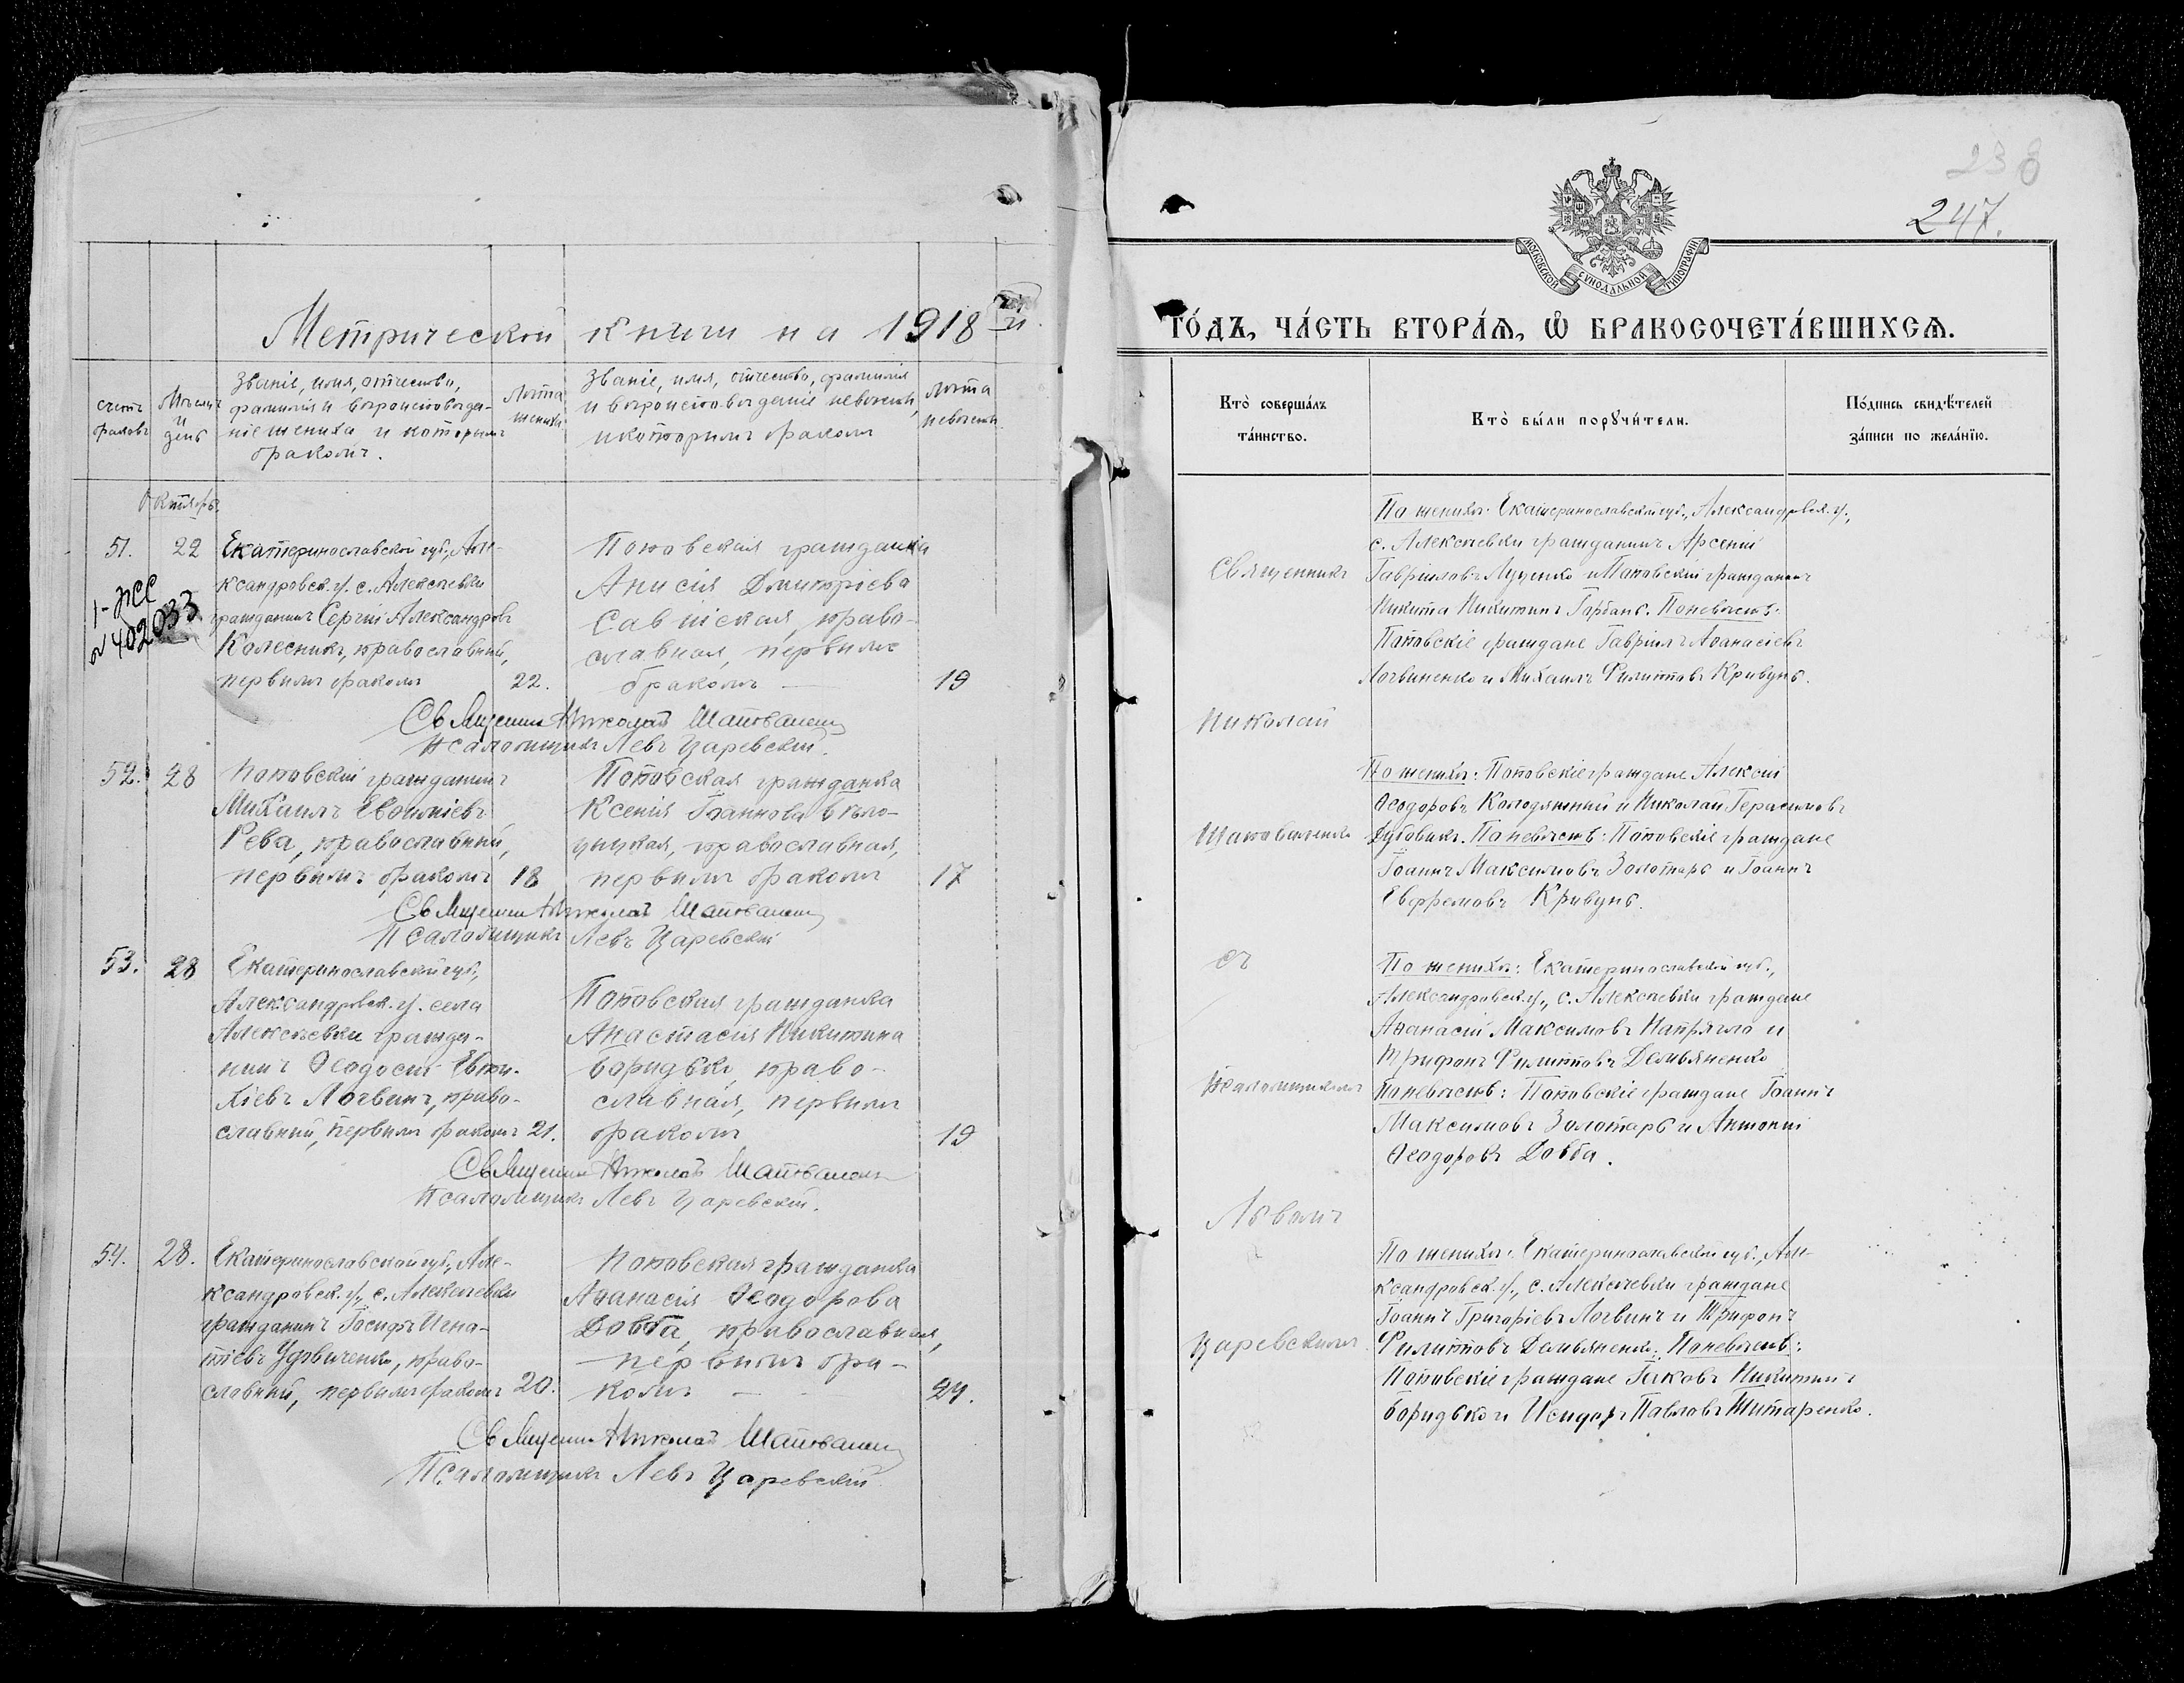 Метрической книги на 1918 й
счетъ браковъ
Мѣсяцъ и день
Званіе, имя, отчество,
фамилія и вѣроисповѣда-
ніе жениха и которымъ
бракомъ.
Лѣта жениха
Званіе, имя, отчество, фамилія
и вѣроисповѣданіе невѣсты,
и которымъ бракомъ
Лѣта невѣсты
Октябрь
51. 22
Екатеринославской губ., Але-
ксандровск. у. с. Алексѣевки
гражданинъ Сергій Александровъ
Колесникъ, православный,
первымъ бракомъ 22.
Поповская гражданка
Анисія Димитріева
Савицкая, право-
славная, первымъ
бракомъ — 19
402033
Священникъ Николай Шаповаленко
Псаломщикъ Левъ Царевскій.
52. 28
Поповскій гражданинъ
Михаилъ Евѳиміевъ
Рева, православный,
первымъ бракомъ 18
Поповская гражданка
Ксенія Іоаннова Бѣло-
православная,
первымъ бракомъ 17
Священникъ Николай Шаповаленко
Псаломщикъ Левъ Царевскій
53. 28
Екатеринославской губ.,
Александровск. у. села
Алексѣевки гражда-
нинъ Ѳеодосій Евти-
хіевъ Логвинъ, право-
славный, первымъ бракомъ 21.
Поповская гражданка
Анастасія Никитина
Боридько, право-
славная, первымъ
бракомъ 19
Священникъ Николай Шаповаленко
Псаломщикъ Левъ Царевскій.
54. 28.
Екатеринославской губ., Але-
ксандровск. у., с. Алексѣевки
гражданинъ Іосифъ Игна-
тіевъ Удовиченко, право-
славный, первымъ бракомъ 20.
Поповская гражданка
Аѳанасія Ѳеодорова
Довба, православная,
первымъ бра-
комъ — 24.
Священникъ Николай Шаповаленко
Псаломщикъ Левъ Царевскій
238
247.
МОСКОВСКОЙ СѴНОДАЛЬНОЙ ТИПОГРАФІИ
ГО́ДЪ, ЧА́СТЬ ВТОРА́Ѧ, Ѽ БРАКОСОЧЕТА́ВШИХСѦ.
Кто̀ соверша́лъ
та́инство.
Кто̀ бы́ли порꙋчи́тели.
По́дпись свидѣ́телей
за́писи по жела́нїю.
Священникъ
Николай
Шаповаленко
съ
Псаломщикомъ
Львомъ
Царевскимъ.
По женихѣ: Екатеринославской губ., Александровск. у.,
с. Алексѣевки гражданинъ Арсеній
Гавріиловъ Луценко и Поповскій гражданинъ
Никита Никитинъ Горбань. По невѣстѣ:
Поповскіе граждане Гавріилъ Аѳанасіевъ
Логвиненко и Михаилъ Филипповъ Кривунь.
По женихѣ: Поповскіе граждане Алексій
Ѳеодоровъ Колодяжный и Николай Герасимовъ
Дубовикъ. По невѣстѣ: Поповскіе граждане
Іоаннъ Максимовъ Золотарь и Іоаннъ
Евфремовъ Кривунь.
По женихѣ: Екатеринославской губ.,
Александровск. у., с. Алексѣевки граждане
Аѳанасій Максимовъ Напрягло и
Трифонъ Филипповъ Демьяненко
По невѣстѣ: Поповскіе граждане Іоаннъ
Максимовъ Золотарь и Антоній
Ѳеодоровъ Довба.
По женихѣ: Екатеринославской губ., Але-
ксандровск. у., с. Алексѣевки граждане
Іоаннъ Григоріевъ Логвинъ и Трифонъ
Филипповъ Демьяненко; По невѣстѣ:
Поповскіе граждане Іаковъ Никитинъ
Боридько и Исидоръ Павловъ Титаренко.